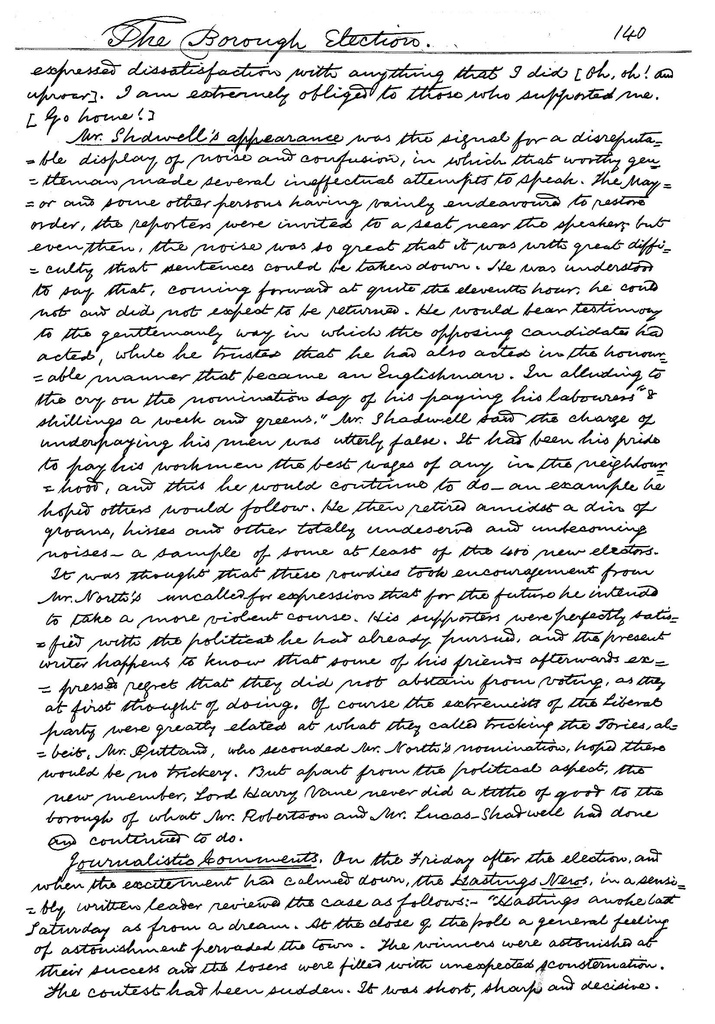 The Borough Election. 140
expressed dissatisfaction with anything that I did [Oh, oh! and
uproar]. I am extremely obliged to those who supported me.
[Go home!]
Mr. Shdwell's appearance was the signal for a disreputa=
=ble display of noise and confusion, in which that worthy gen=
=tleman made several ineffectual attempts to speak. The May=
=or and some other persons having vainly endeavoured to restore
order, the reporters were invited to a seat near the speakers, but
even then, the noise was so great that it was with great diffi=
=culty that sentences could be taken down. He was understood
to say that, coming forward at quite the eleventh hour, he could
not and did not expect to be returned. He would bear testimony
to the gentlemanly way in which the opposing candidates had
acted, while he trusted that he had also acted in the honour=
=able manner that became an Englishman. In alluding to
the cry on the nomination day of his paying his labourers "8
shillings a week and greens." Mr. Shadwell said the charge of
underpaying his men was utterly false. It had been his pride
to pay his workmen the best wages of any in the neighbour=
=hood, and this he would continue to do – an example he
hoped others would follow. He then retired amidst a din of
groans, hisses and other totally undeserved and unbecoming
noises – a sample of some at least of the 400 new electors.
It was thought that these rowdies took encouragement from
Mr. North's uncalled for expression that for the future he intended
to take a more violent course. His supporters were perfectly satis=
=fied with the political he had already pursued, and the present
writer happens to know that some of his friends afterwards ex=
=pressed regret that they did not abstain from voting, as they
at first thought of doing. Of course the extremists of the Liberal
party were greatly elated at what they called tricking the Tories, al=
=beit, Mr. Putland, who seconded Mr. North's nomination, hoped there
would be no trickery. But apart from the political aspect, the
new member, Lord Harry Vane never did a tithe of good to the
borough of what Mr. Robertson and Mr. Lucas-Shadwell had done
and continued to do.
Journalistic Comments. On the Friday after the election, and
when the excitement had calmed down, the Hastings News, in a sensi=
=bly written leader reviewed the case as follows:- "Hastings awoke last
Saturday as from a dream. At the close of the poll a general feeling
of astonishment pervaded the town. The winners were astonished at
their success and the losers were filled with unexpected consternation.
The contest had been sudden. It was short, sharp and decisive.